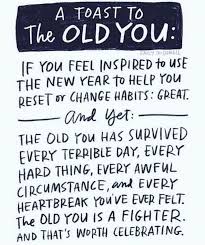 A TOAST TO
The OLD YOU:
IF YOU FEEL INSPIRED to USE
THE NEW YEAR to HELP YOU
RESET or CHANGE HABITS: GREAT.
And Yet:
THE OLD YOU HAS SURVIVED
EVERY TERRIBLE DAY, EVERY
HARD THING, EVERY AWFUL
CIRCUMSTANCE, and EVERY
HEARTBREAK YOU'VE EVER FELT.
The OLD YOU IS A FIGHTER.
AND THAT'S WORTH CELEBRATING.